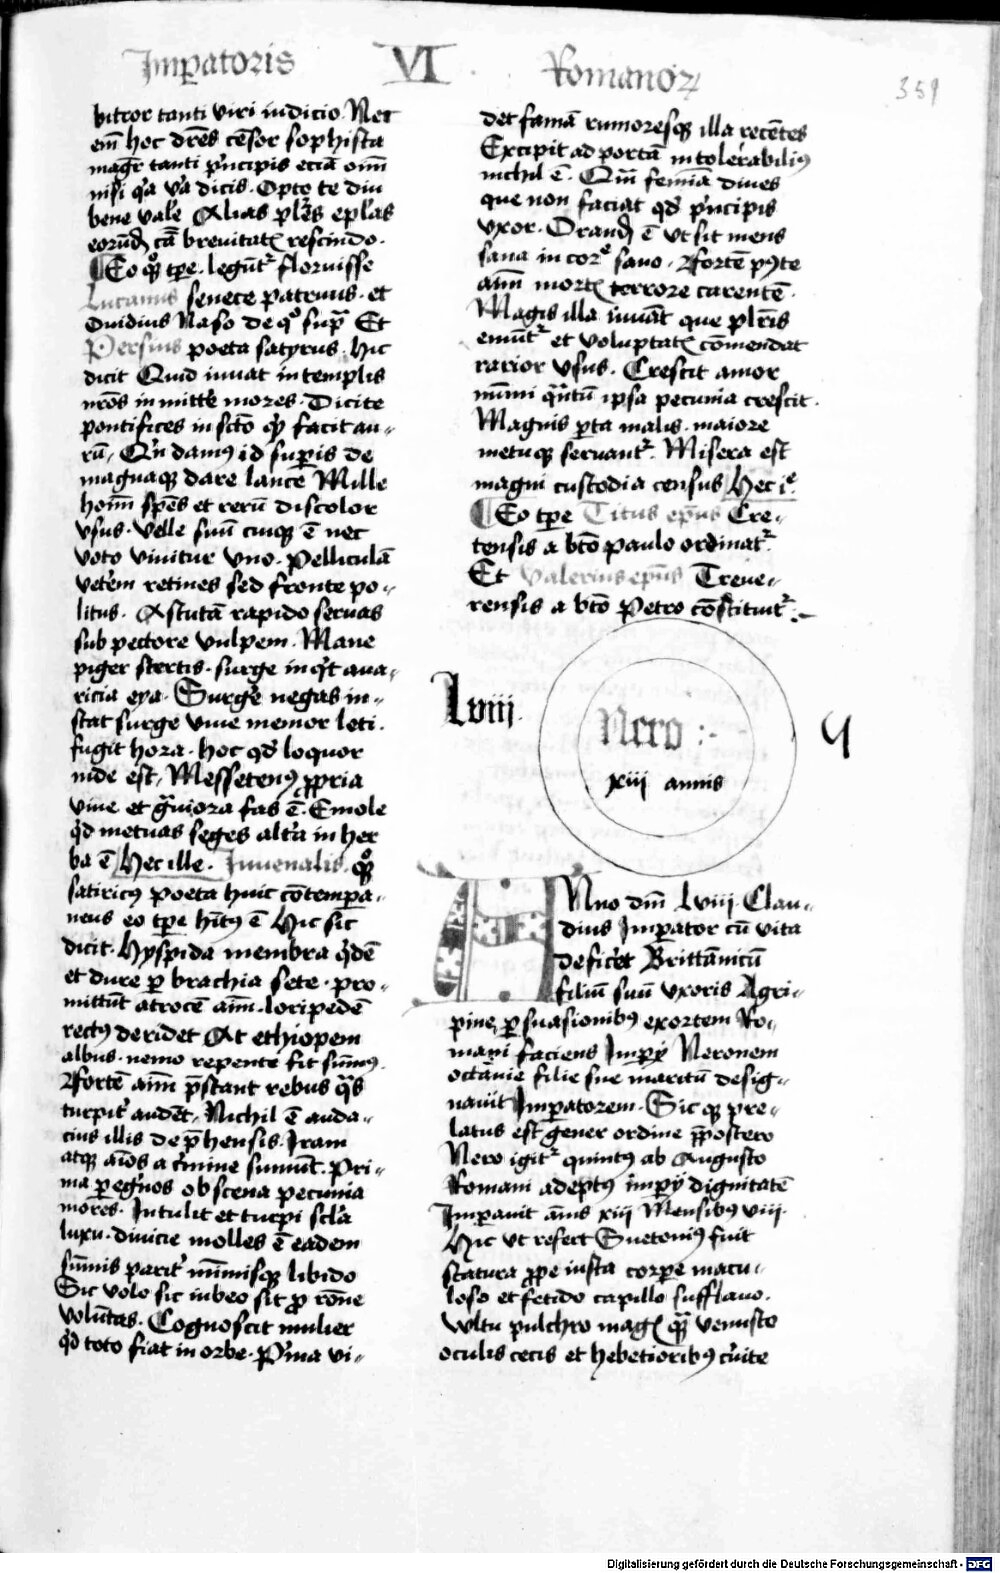 Imꝑatoris VI Romanoꝝ
359
bitror tanti viri iudicio Nec
em̄ hoc dr̄es cēsor sophista
magr̄ tanti pͥncipis eciā om̄i
nisi qͥa v̓a dicis. Opto te diu
bene val̓e Alias pl̓es epl̓as
eorūd cā breuitatꝭ rescindo.
Eo qͦꝫ tꝑe. legūtᷣ floruisse
Lucanus senece patruus. et
Ouidius Naso de qͦ supͣ Et
Persius poeta satyrus. hic
dicit Quid iuuat in templis
nr̄os in mittē mores. Dicite
pontifices in scͦto qͥd facit au-
rū, Qͥn damꝰ id suꝑis de
magnaqꝫ dare lance Mille
hoīm sp̄es et rerū discolor
vsus. velle suū cuiqꝫ ē nec
voto viuitur vno. Pelliculā
vet̓em retines sed fronte po-
litus. Astutā rapido seruas
sub pectore vulpem. Mane
piger stertis. surge inqͥt aua-
ricia eya. Surge negas in-
stat surge viue memor leti.
fugit hora. hoc qd̓ loquor
inde est, Messetenꝰ ꝓpria
viue et gͣuiora fas ē. Emole
qͥd metuas seges alt̓a in her
ba ē Hec ille. Iuuenalis. qͦꝫ
satiricꝰ poeta huic cōtempa-
neus eo tꝑe hītꝰ ē Hic sic
dicit. Hyspida membra qͥdē
et dure ꝑ brachia sete. pro-
mittūt atrocē aīm. loripedē
rectꝰ derideт At ethiopem
albus. nemo repente fit sūmꝰ.
Fortē aīm p̄stant rebus qͣs
turpit̓ audēt, Nichil ē auda-
cius illis dep̄hensis. Iram
atqꝫ aīos a cͥmine sumūt. Pri-
ma ꝑegͥnos obscena pecunia
mores. Intulit et turpi sc̄la
luxu. diuicie molles ē eadem
sūmis parit̓ mīmisqꝫ libido
Sic volo sic iubeo sit ꝓ rōne
volūtas. Cognoscit mulier
qͥd toto fiat in orbe. Pͥma vi-
det famā rumoresqꝫ illa recētes
Excipit ad portā intolerabiliꝰ
nichil ē. Qm̄ femīa diues
que non faciat qd̓ pͥncipis
vxor. Orand ē vt sit mens
sana in corꝑe sano. Fortē pꝰte
aīm mortꝭ terrore carentē.
Magis illa iuuāt que plr̄is
emūtᷣ et voluptatꝭ cōmendat
rarior vsus. Crescit amor
nūmi qͣntū ipsa pecunia crescit.
Magnis ꝑta malis. maiore
metuqꝫ seruantᷣ. Misera est
magni custodia census Hec iͤ.
Eo tꝑe Titus ep̄us Cre-
tensis a bt̄o paulo ordinatᷣ
Et Valerius ep̄us Treue-
rensis a bt̄o Petro cōstituitᷣ:-
Lviii.
Nero:-
xiii annis
Anno dn̄i Lviii. Clau-
dius Imꝑator cū vita
deficeret Brittānicū
filiū suū vxoris Agri-
pine, ꝑsuasionibꝰ exortem Ro-
mani faciens Imꝑij Neronem
octauie filie sue maritū desig-
nauit Imꝑatorem. Sicqꝫ pre-
latus est gener ordine p̄postero
Nero igitᷣ quintꝰ ab Augusto
Romani adeptꝰ imꝑij dignitatē
Imꝑauit ānis xiii Mensibꝰ viii.
Hic vt refert Suetoniꝰ fuit
statura ꝓpe iusta corꝑe macu-
loso et fetido capillo sufflauo.
Wltu pulchro magꝭ qͣꝫ venusto
oculis cecis et hebetioribꝰ cͣuite
Digitalisierung gefördert durch die Deutsche Forschungsgemeinschaft - DFG